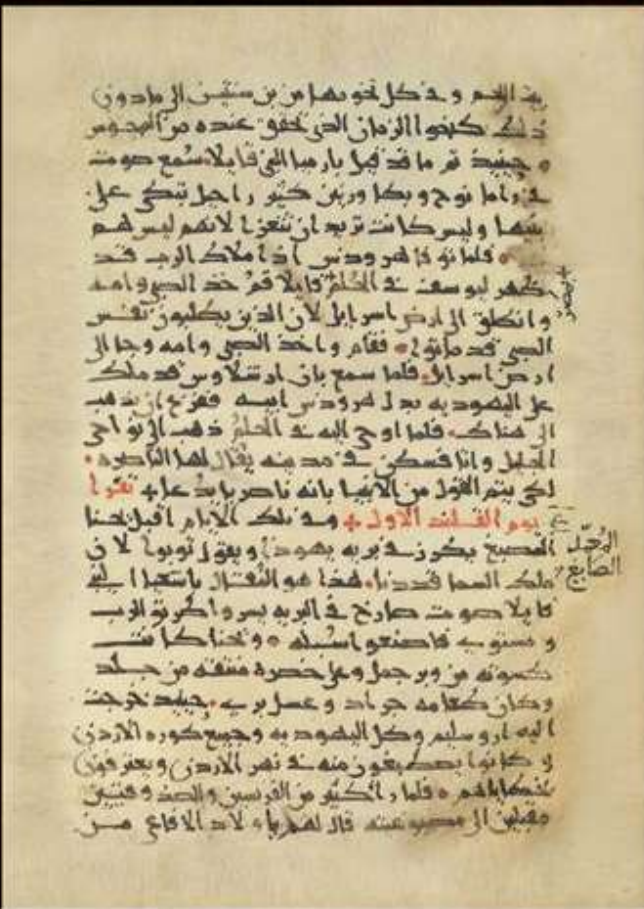 بيت لحم و في كل تخومها من بن سنتين الى مادون
ذلك كنحو الزمان الذي تحقق عنده من المجوس
حينيذ تم ما قد قيل بارميا النبي قايلا سمع صوت
في راما نوح وبكا ورنين كثير راحيل تبكي على
بنيها وليس كانت تريد ان تتعزا لانهم ليس هم
فلما توفا هرودس اذا ملاك الرب قد
ظهر ليوسف في الحلم قايلا قم خذ الصبي وامه
وانطلق الى ارض اسرايل لان الذين يطلبون نفس
الصبي قد ماتوا فقام واخذ الصبي وامه وجا الى
ارض اسرايل فلما سمع بان ارشلاوس قد ملك
على اليهوديه بدل هرودس ابيه ففزع ان يذهب
الى هناك فلما اوحي اليه في الحلم ذهب الى نواحي
الجليل واتا فسكن في مدينه يقال لها الناصره
لكي يتم القول من الانبيا بانه ناصريا يدعا تقرا
يوم الاول وفي تلك الايام اقبل يحنا
المصبغ يكرز في بريه يهودا ويقول توبوا لان
ملك السما قد دنا هذا هو الذي باشعيا النبي
قايلا صوت صارخ في البريه يسروا طريق الرب
و فاصنعوا سبله ويحنا كانت
كسوته من وبر جمل وعلى خصره منطقه من جلد
وكان طعامه جراد وعسل بري حينيذ خرجت
اليه اروسليم وكل اليهوديه وجميع كوره الاردن
وكانوا يصطبغون منه في نهر الاردن ويعترفون
بخطاياهم فلما را كثير من الفريسين والصدوقيين
مقبلين الى مصبوغيته قال لهم يا ولاد الافاعي من